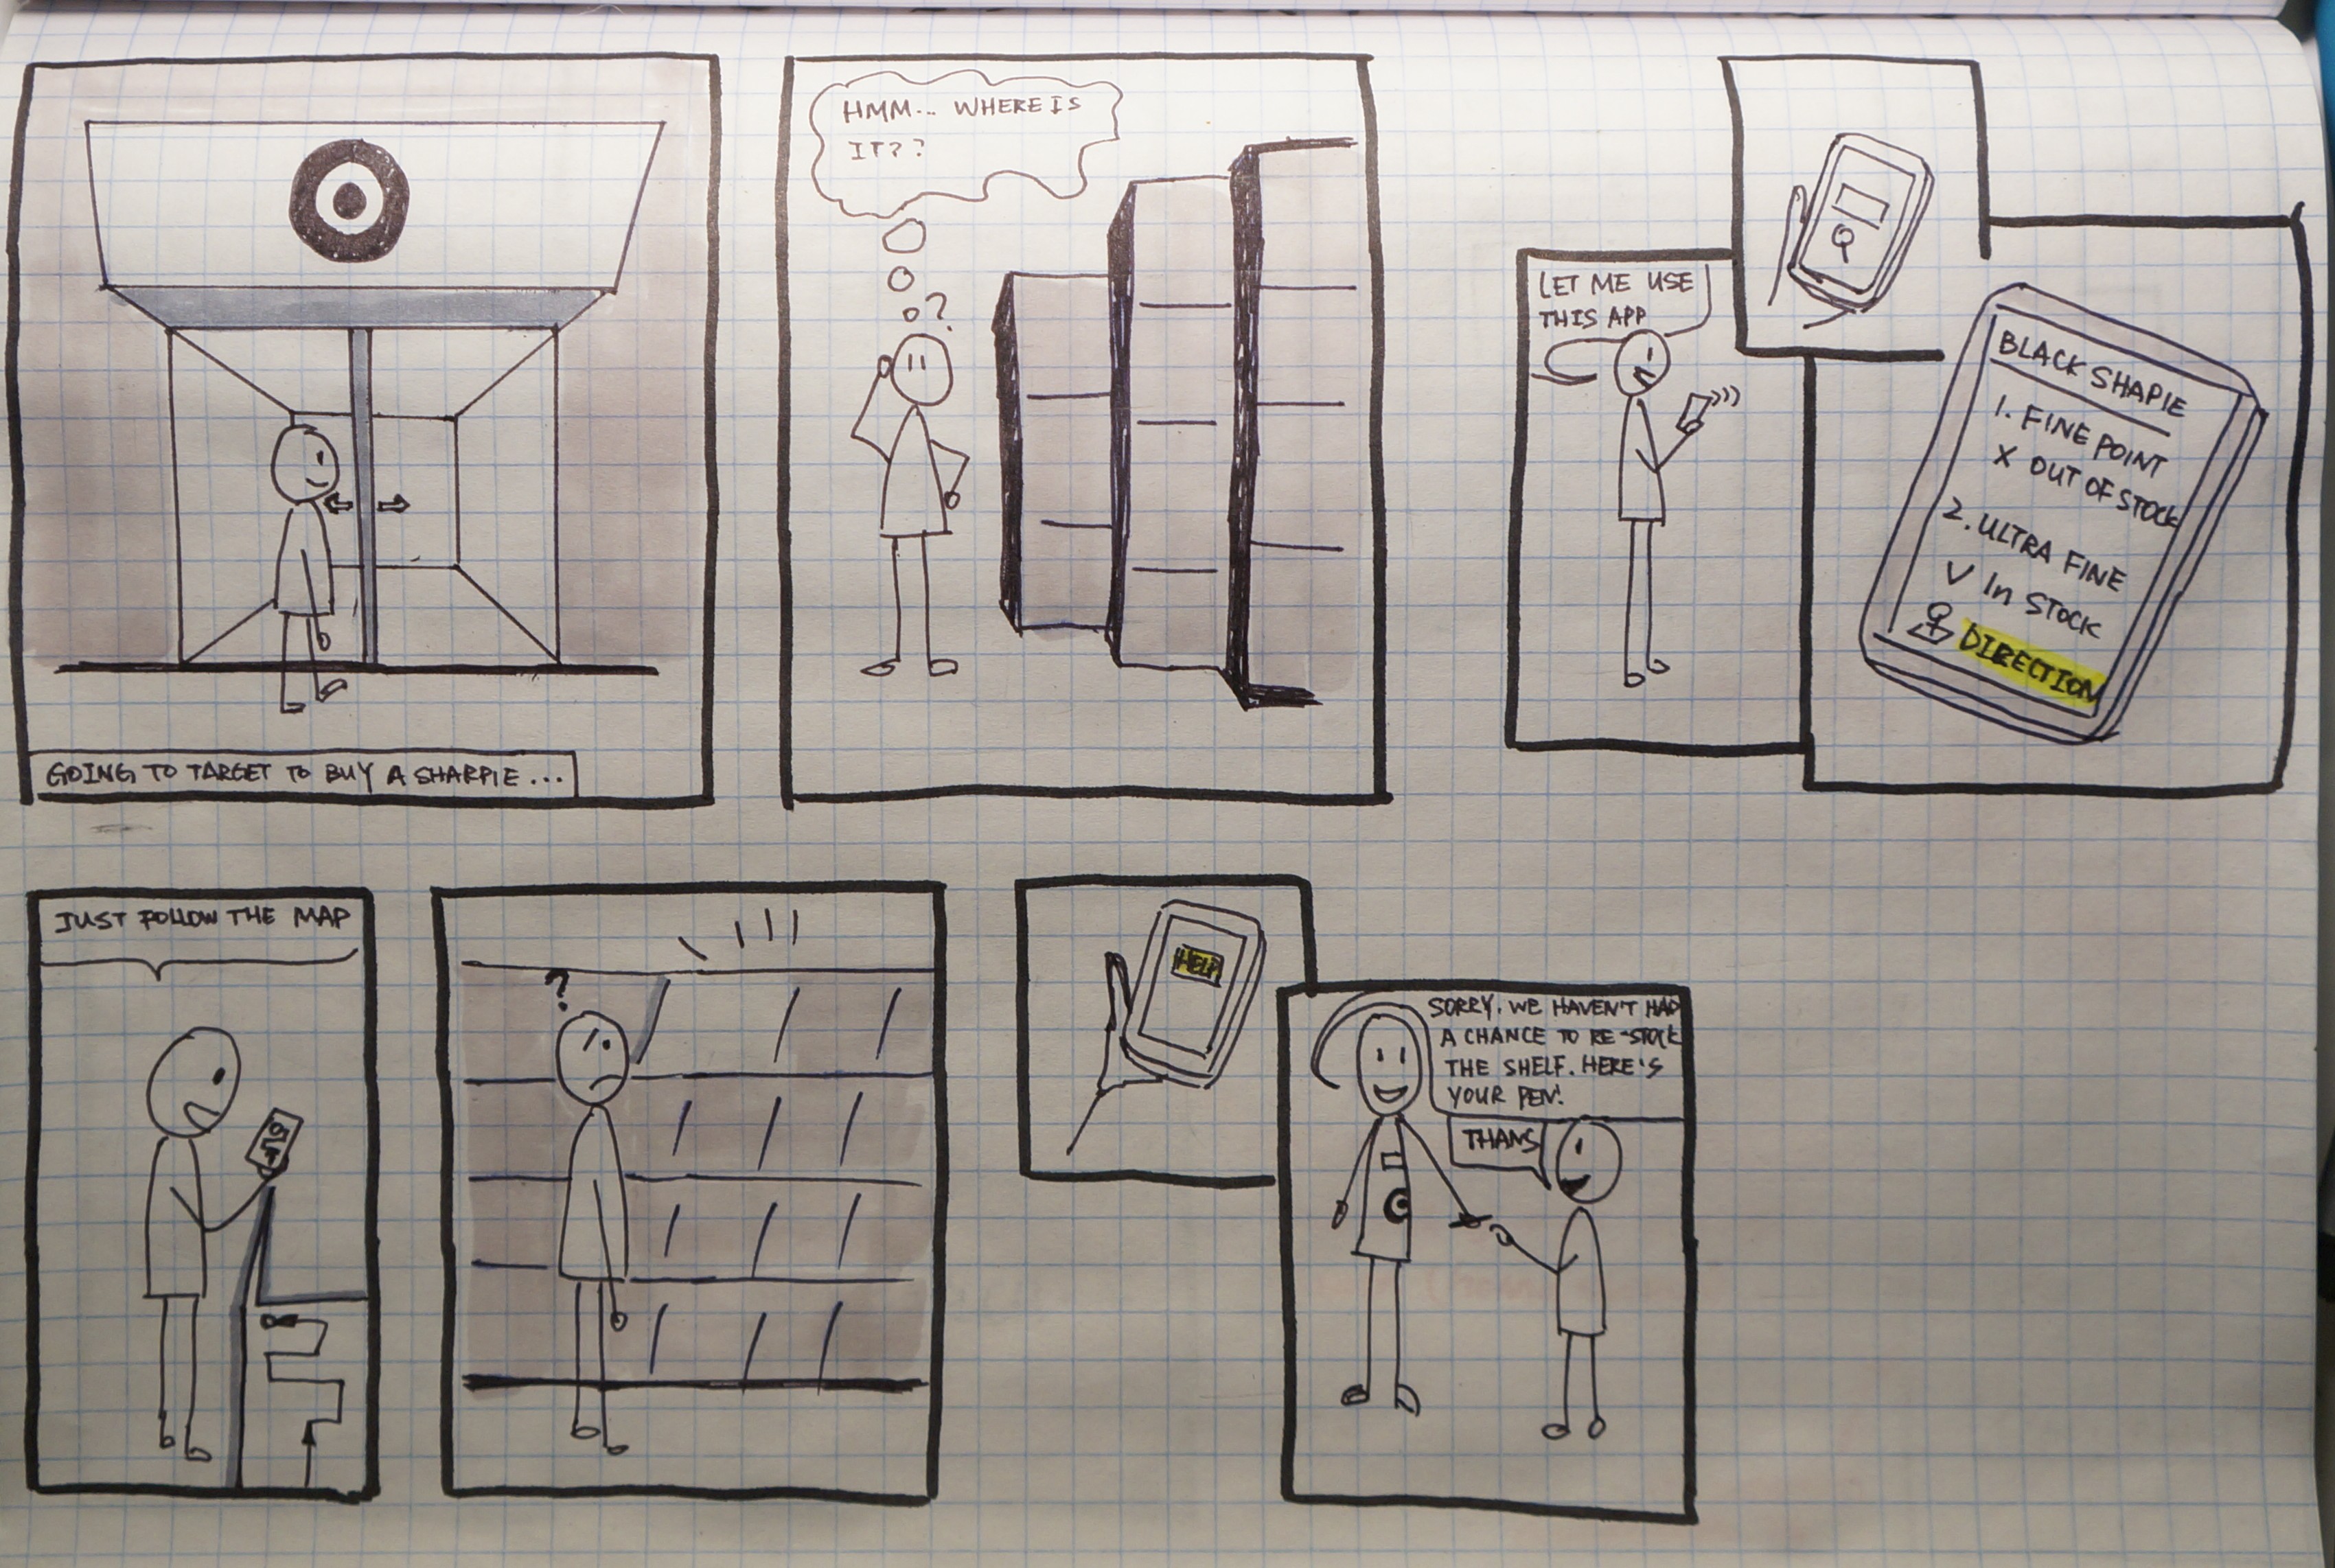 GOING TO TARGET TO BUY A SHARPIE...
HMM... WHERE IS
IT??
?
LET ME USE
THIS APP
BLACK SHAPIE
1. FINE POINT
X OUT OF STOCK
2. ULTRA FINE
V In STOCK
DIRECTION
JUST FOLLOW THE MAP
?
HELP
SORRY. WE HAVEN'T HAD
A CHANCE TO RE-STOCK
THE SHELF. HERE'S
YOUR PEN!
THANS